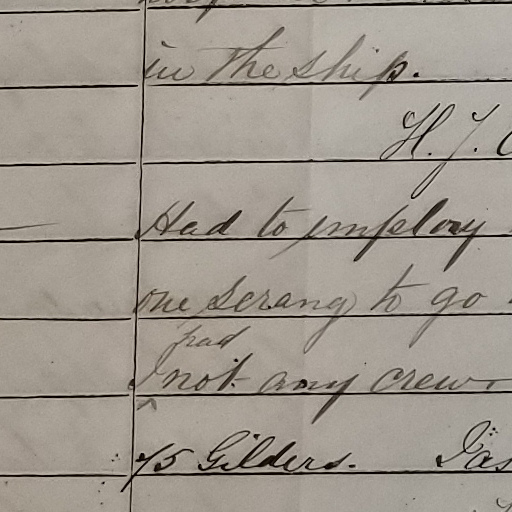 in the ship.
H. J.
Had to employ
one Serang to go
had
I not any crew.
75 Gilders. Jas